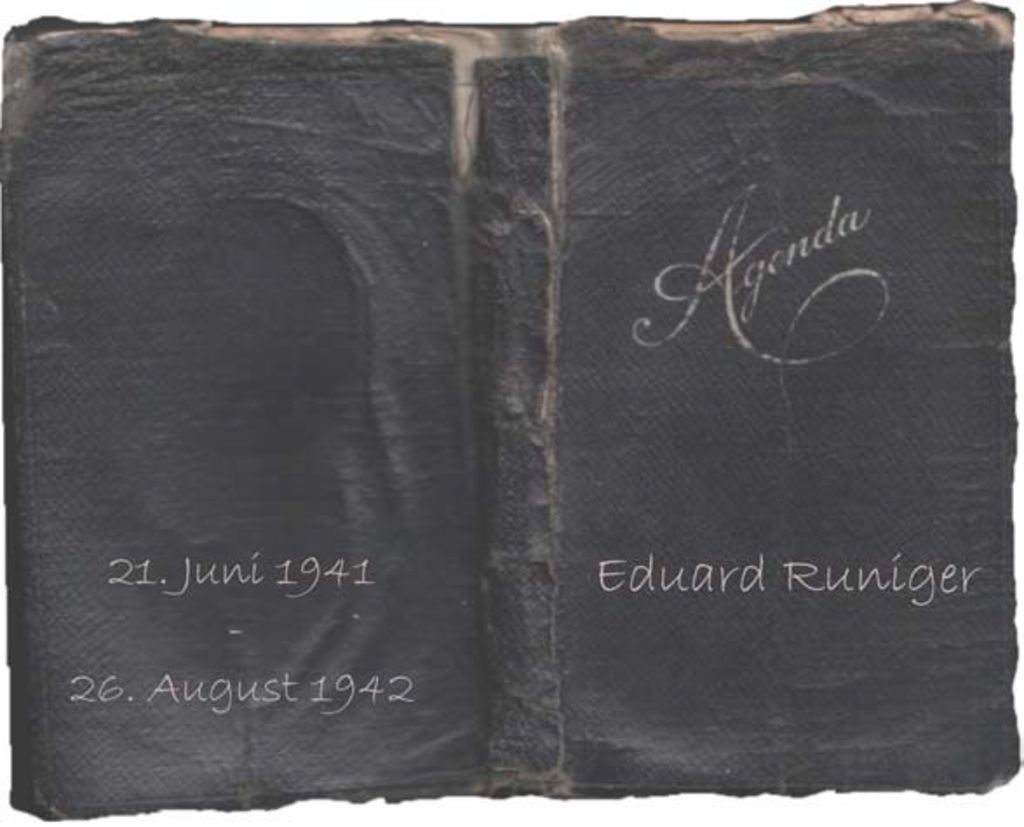 21. Juni 1941
-
26. August 1942
Agenda
Eduard Runiger